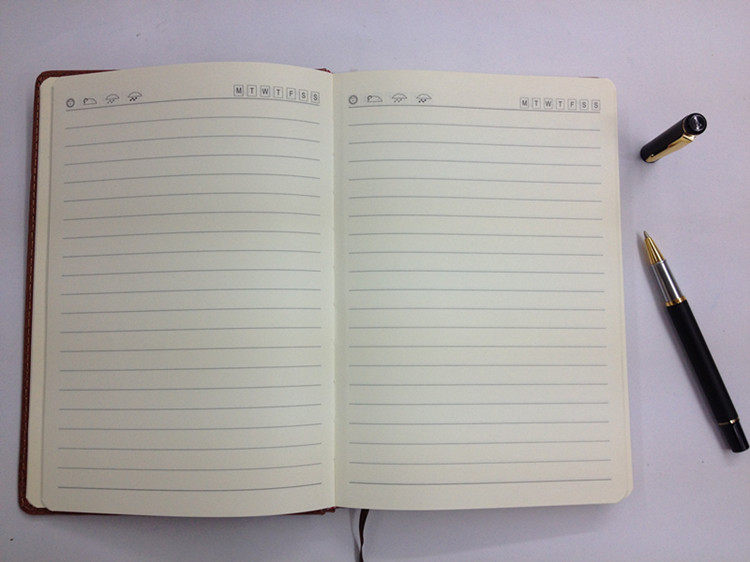 M T W T F S S
M T W T F S S